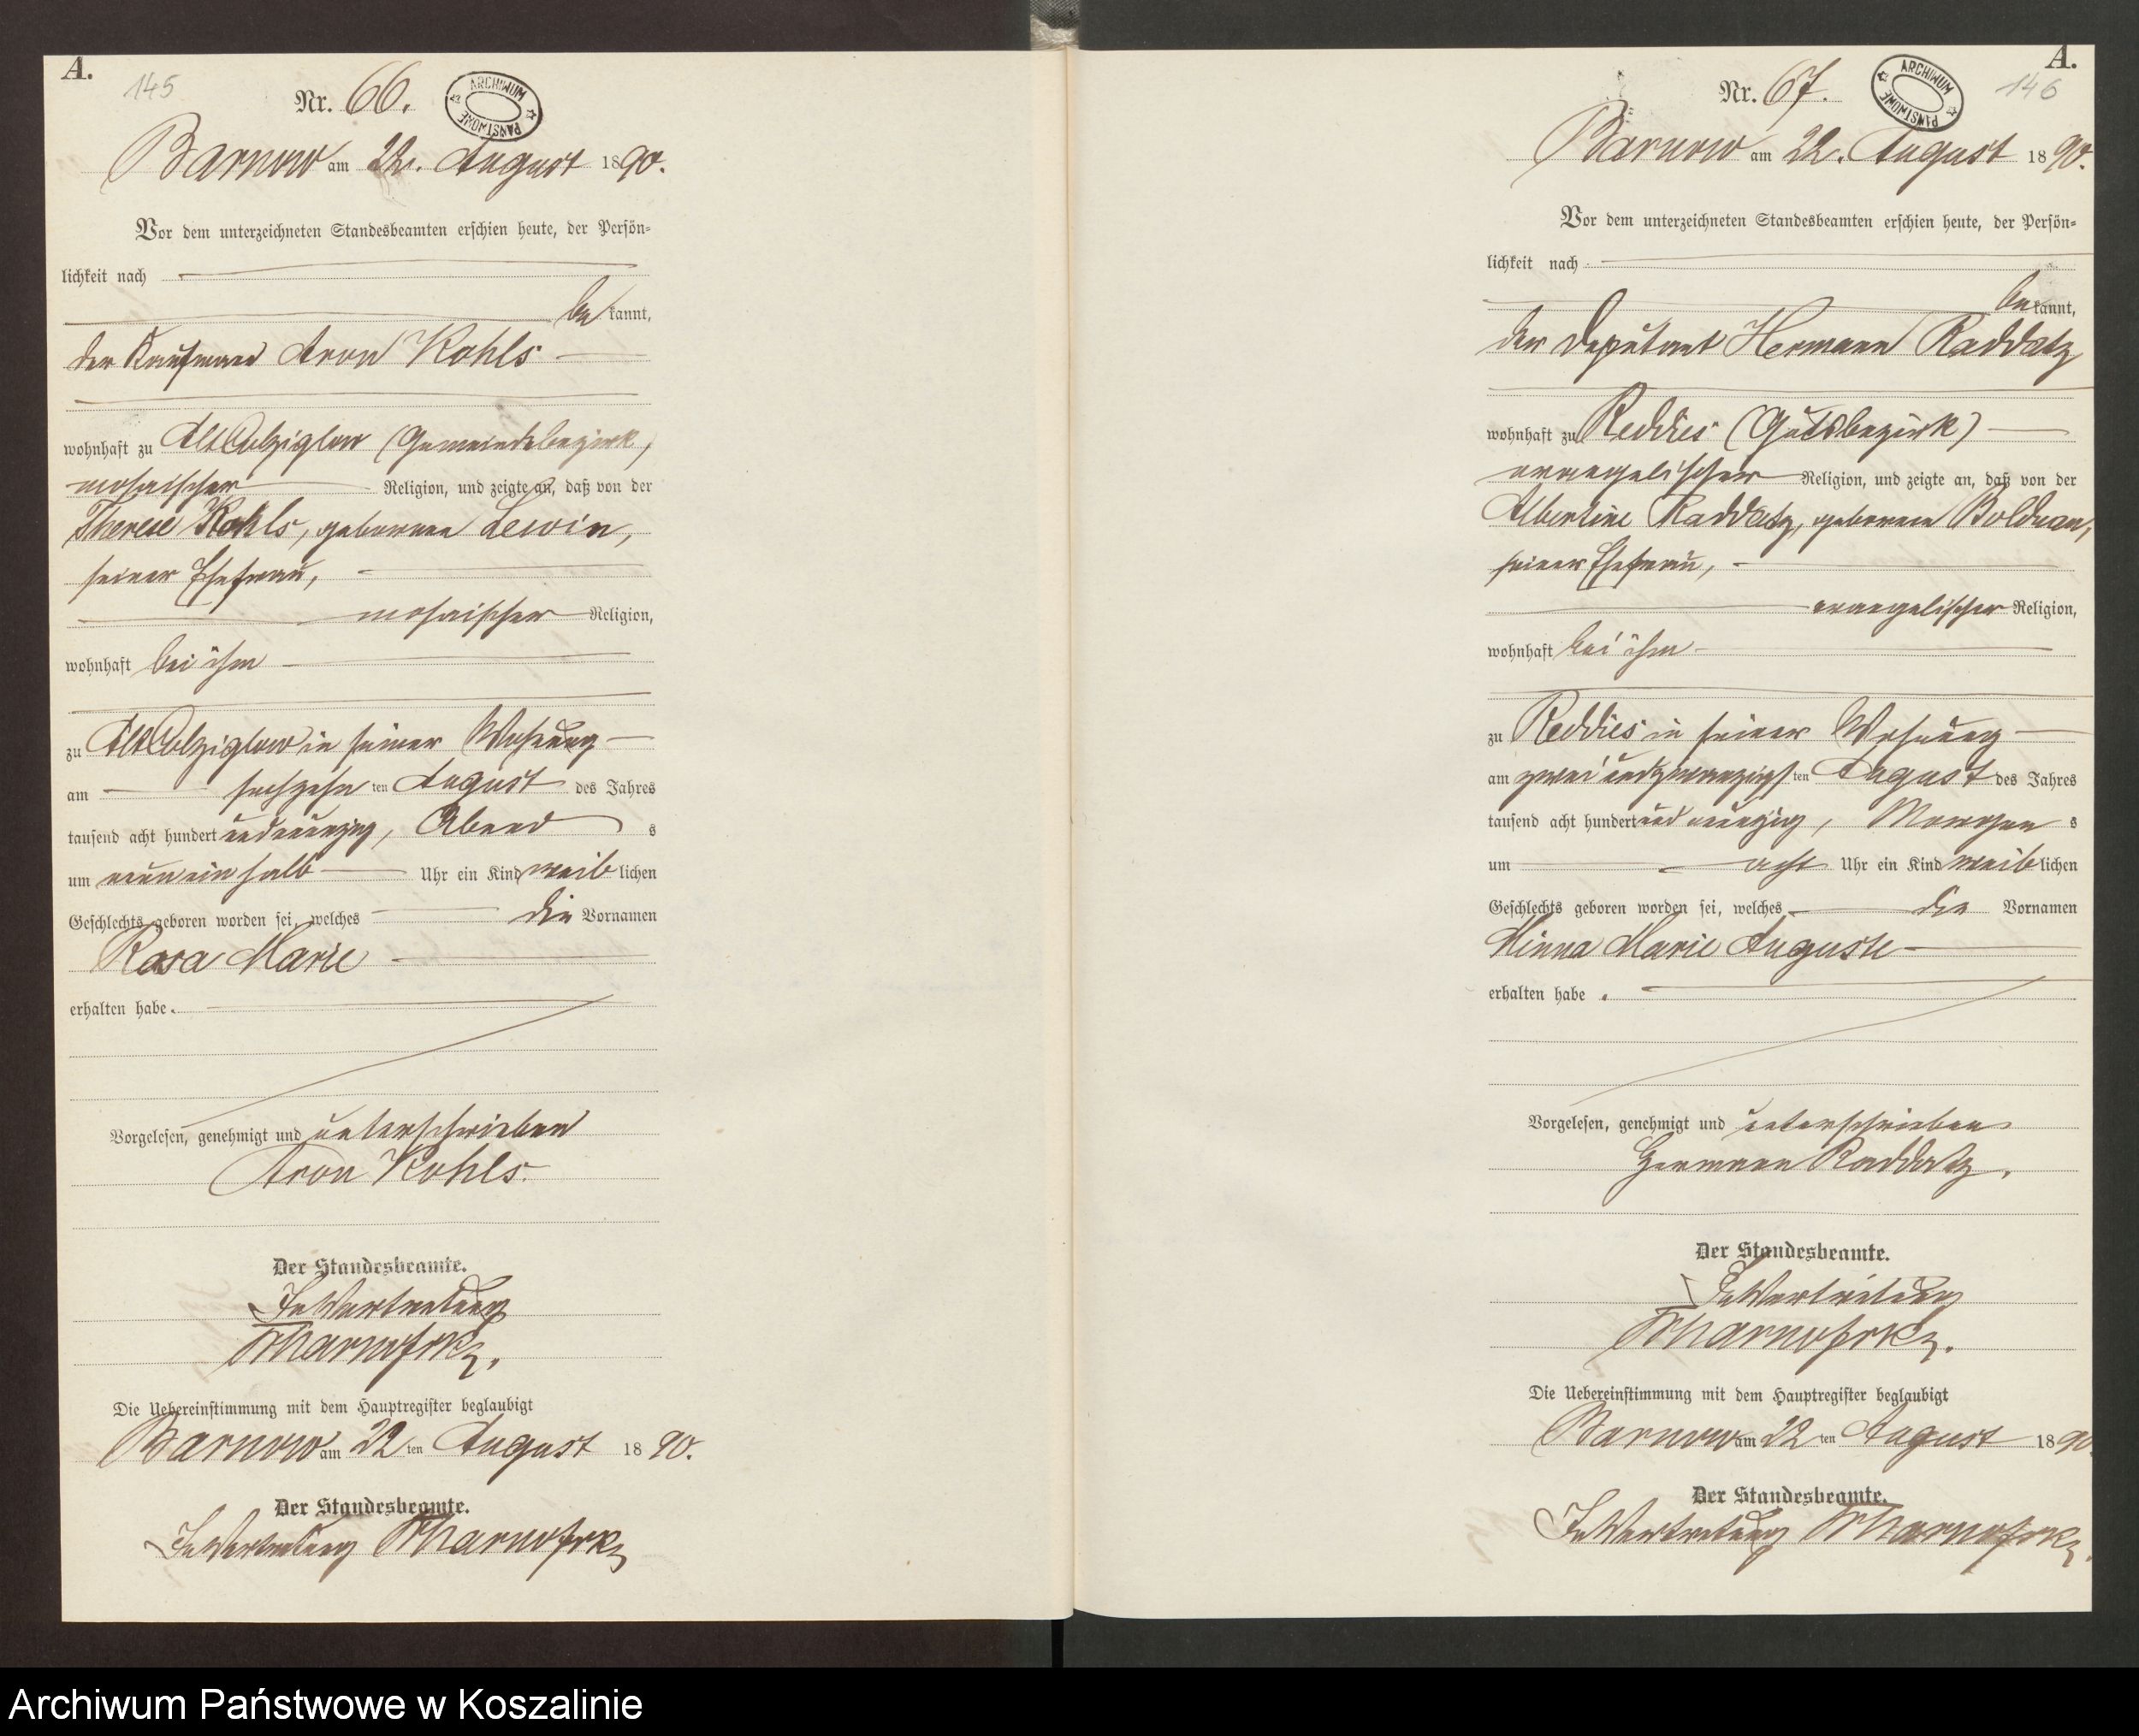 A.
145
Nr. 66.
ARCHIWUM PAŃSTWOWE
Barnow am 22. August 1890.
Vor dem unterzeichneten Standesbeamten erschien heute, der Persön-
lichkeit nach
bekannt,
der Kaufmann Aron Kohls
wohnhaft zu Alt Colziglow (Gemeindebezirk,
mosaischer Religion, und zeigte an, daß von der
Therese Kohls, geborenen Lewin,
seiner Ehefrau,
mosaischer Religion,
wohnhaft bei ihm
zu Alt Colziglow in seiner Wohnung
am sechszehnten August des Jahres
tausend acht hundert undneunzig, Abends
um neun ein halb Uhr ein Kind weiblichen
Geschlechts geboren worden sei, welches die Vornamen
Rosa Marie
erhalten habe.
Vorgelesen, genehmigt und unterschrieben
Aron Kohls.
Der Standesbeamte.
In Vertretung
Die Uebereinstimmung mit dem Hauptregister beglaubigt
Barnow am 22ten August 1890.
Der Standesbeamte.
In Vertretung
A.
146
Nr. 67.
ARCHIWUM PAŃSTWOWE
Barnow am 22. August 1890.
Vor dem unterzeichneten Standesbeamten erschien heute, der Persön-
lichkeit nach
bekannt,
der Deputant Hermann Raddatz
wohnhaft zu Reddies (Gutsbezirk)
evangelischer Religion, und zeigte an, daß von der
Albertine Raddatz, geborenen Bolduan,
seiner Ehefrau,
evangelischer Religion,
wohnhaft bei ihm
zu Reddies in seiner Wohnung
am zwei und zwanzigsten August des Jahres
tausend acht hundert und neunzig, Morgens
um acht Uhr ein Kind weiblichen
Geschlechts geboren worden sei, welches die Vornamen
Minna Marie Auguste
erhalten habe.
Vorgelesen, genehmigt und unterschrieben
Hermann Raddatz.
Der Standesbeamte.
In Vertretung
Die Uebereinstimmung mit dem Hauptregister beglaubigt
Barnow am 22ten August 1890.
Der Standesbeamte.
In Vertretung
Archiwum Państwowe w Koszalinie